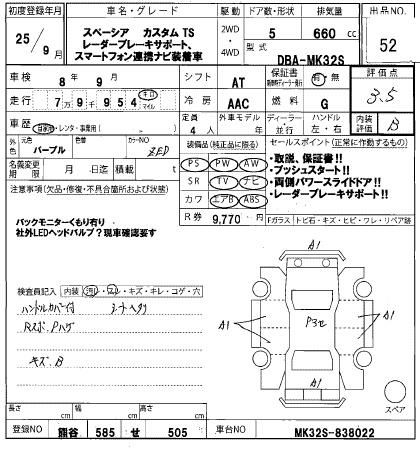 初度登録年月 車名・グレード 駆動 ドア数・形状 排気量 出品NO.
25/9月 スペーシア カスタムTS 2WD・4WD 5 660cc 52
レーダーブレーキサポート、 型式
スマートフォン連携ナビ装着車 DBA-MK32S
車検 8年 9月 シフト AT 保証書 有・無 評価点
走行 7万9千954 キロ マイル 冷房 AAC 燃料 G 3.5
車歴 自家用・レンタ・事業用( ) 定員 4人 外車モデル 年 ディーラー・並行 ハンドル 左・右 内装評価 B
外色 元色 パープル カラーNO ZED 色 装備品(純正品に限る) セールスポイント(正常に作動するもの)
名義変更期限 月 日迄 積込 PS PW AW ・取説、保証書!!
SR TV ナビ ・プッシュスタート!!
注意事項(欠品・修復・不具合箇所および状態) ・両側パワースライドドア!!
カワ エアB ABS ・レーダーブレーキサポート!!
バックモニターくもり有り R券 9,770円 Fガラス トビ石・キズ・ヒビ・ワレ・リペア跡
社外LEDヘッドバルブ?現車確認要す
A1
検査員記入 内装 汚レ・スレ・キズ・キレ・コゲ・穴
ハンドルカバー付 シートヘタリ
A1 P3セ A1
Rスポ.Pハゲ
キズ.B
A1
スペア
長さ cm 幅 cm 高さ cm
登録NO 熊谷 585 せ 505 車台NO MK32S-838022